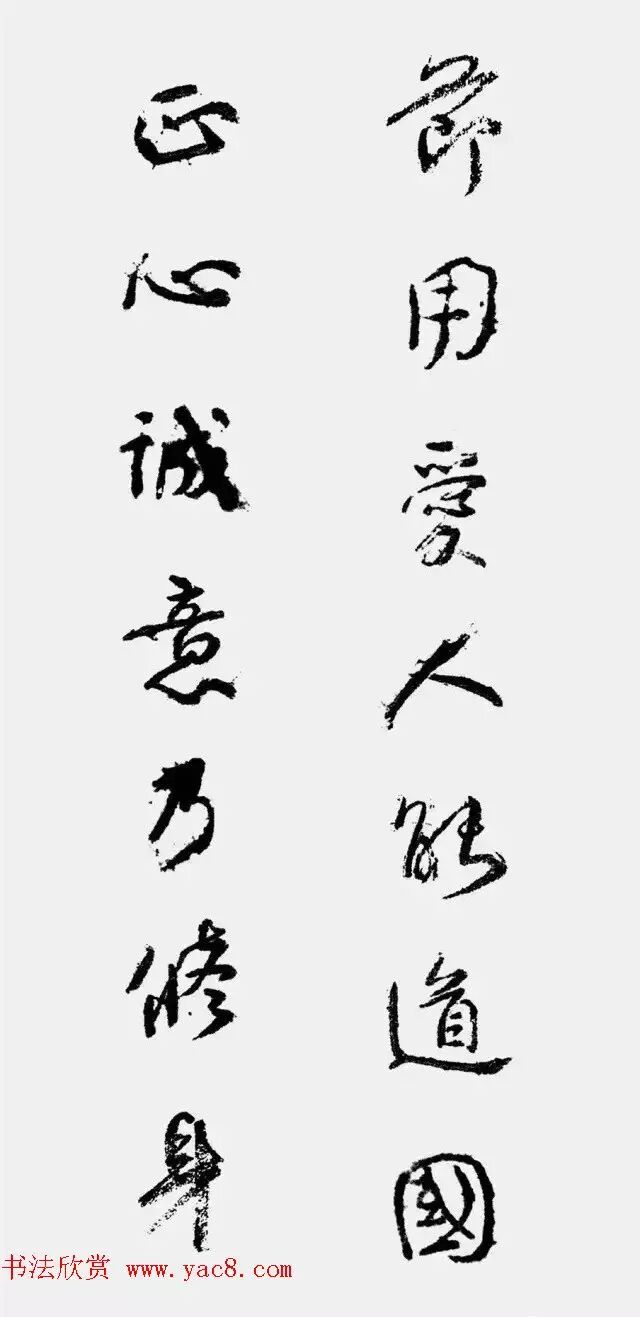 節用愛人能道國
正心誠意乃修身
书法欣赏 www.yac8.com